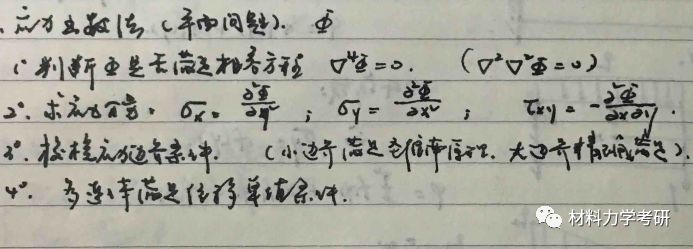 、应力函数法（平面问题）. Φ
1° 判断Φ是否满足相容方程 ∇⁴Φ=0. （∇²∇²Φ=0）
2°. 求应力分量. σx=∂²Φ/∂y² ; σy=∂²Φ/∂x² ; τxy=-∂²Φ/∂x∂y.
3°. 校核应力边界条件. （小边界满足圣维南原理. 大边界精确满足）.
4°. 多连体满足位移单值条件.
材料力学考研